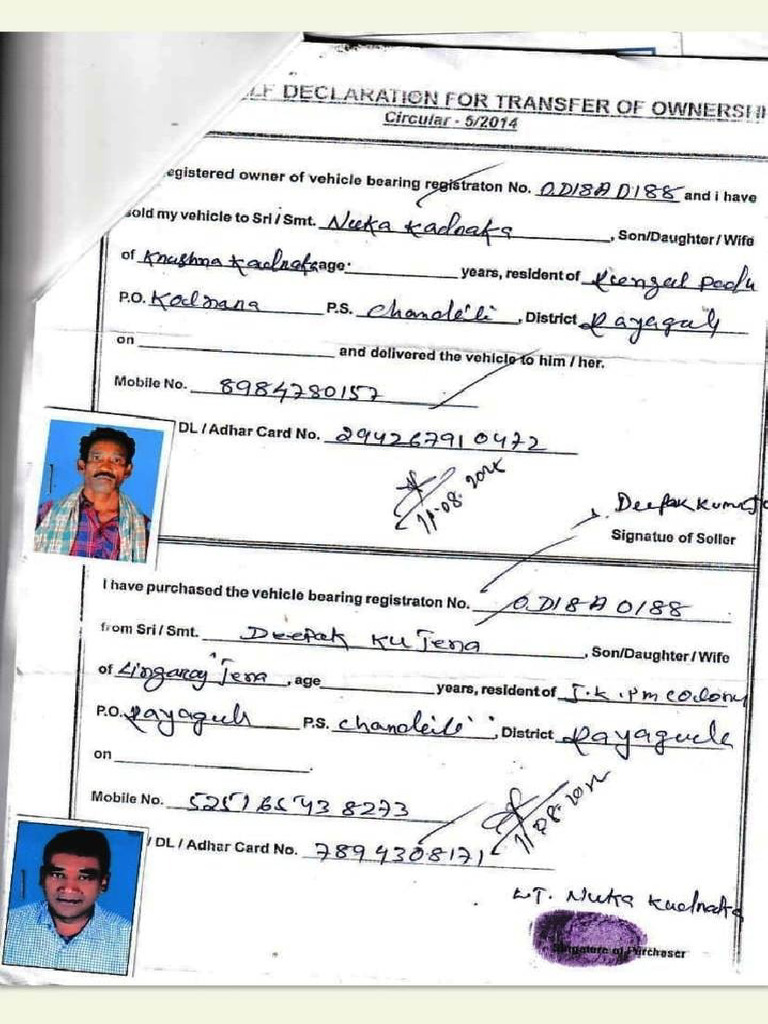 LF DECLARATION FOR TRANSFER OF OWNERSHI
Circular - 5/2014
egistered owner of vehicle bearing registraton No. OD18A0188 and i have
sold my vehicle to Sri / Smt. Neeka Kadraka, Son/Daughter / Wife
of Krushna Kadraka age years, resident of
P.O. P.S. Chandili, District Rayagada
on and delivered the vehicle to him / her.
Mobile No. 8984780157
DL / Adhar Card No. 294267910472
Deepak Kumar
Signatue of Seller
I have purchased the vehicle bearing registraton No. OD18A0188
from Sri / Smt. Deepak Ku Jena, Son/Daughter / Wife
of Lingaraj Jena, age years, resident of J.K.pm colony
P.O. Rayagada P.S. Chandili, District Rayagada
on
Mobile No. 525165438273
/ DL / Adhar Card No. 7894308171
LT. Neeka Kadraka
Signature of Purchaser